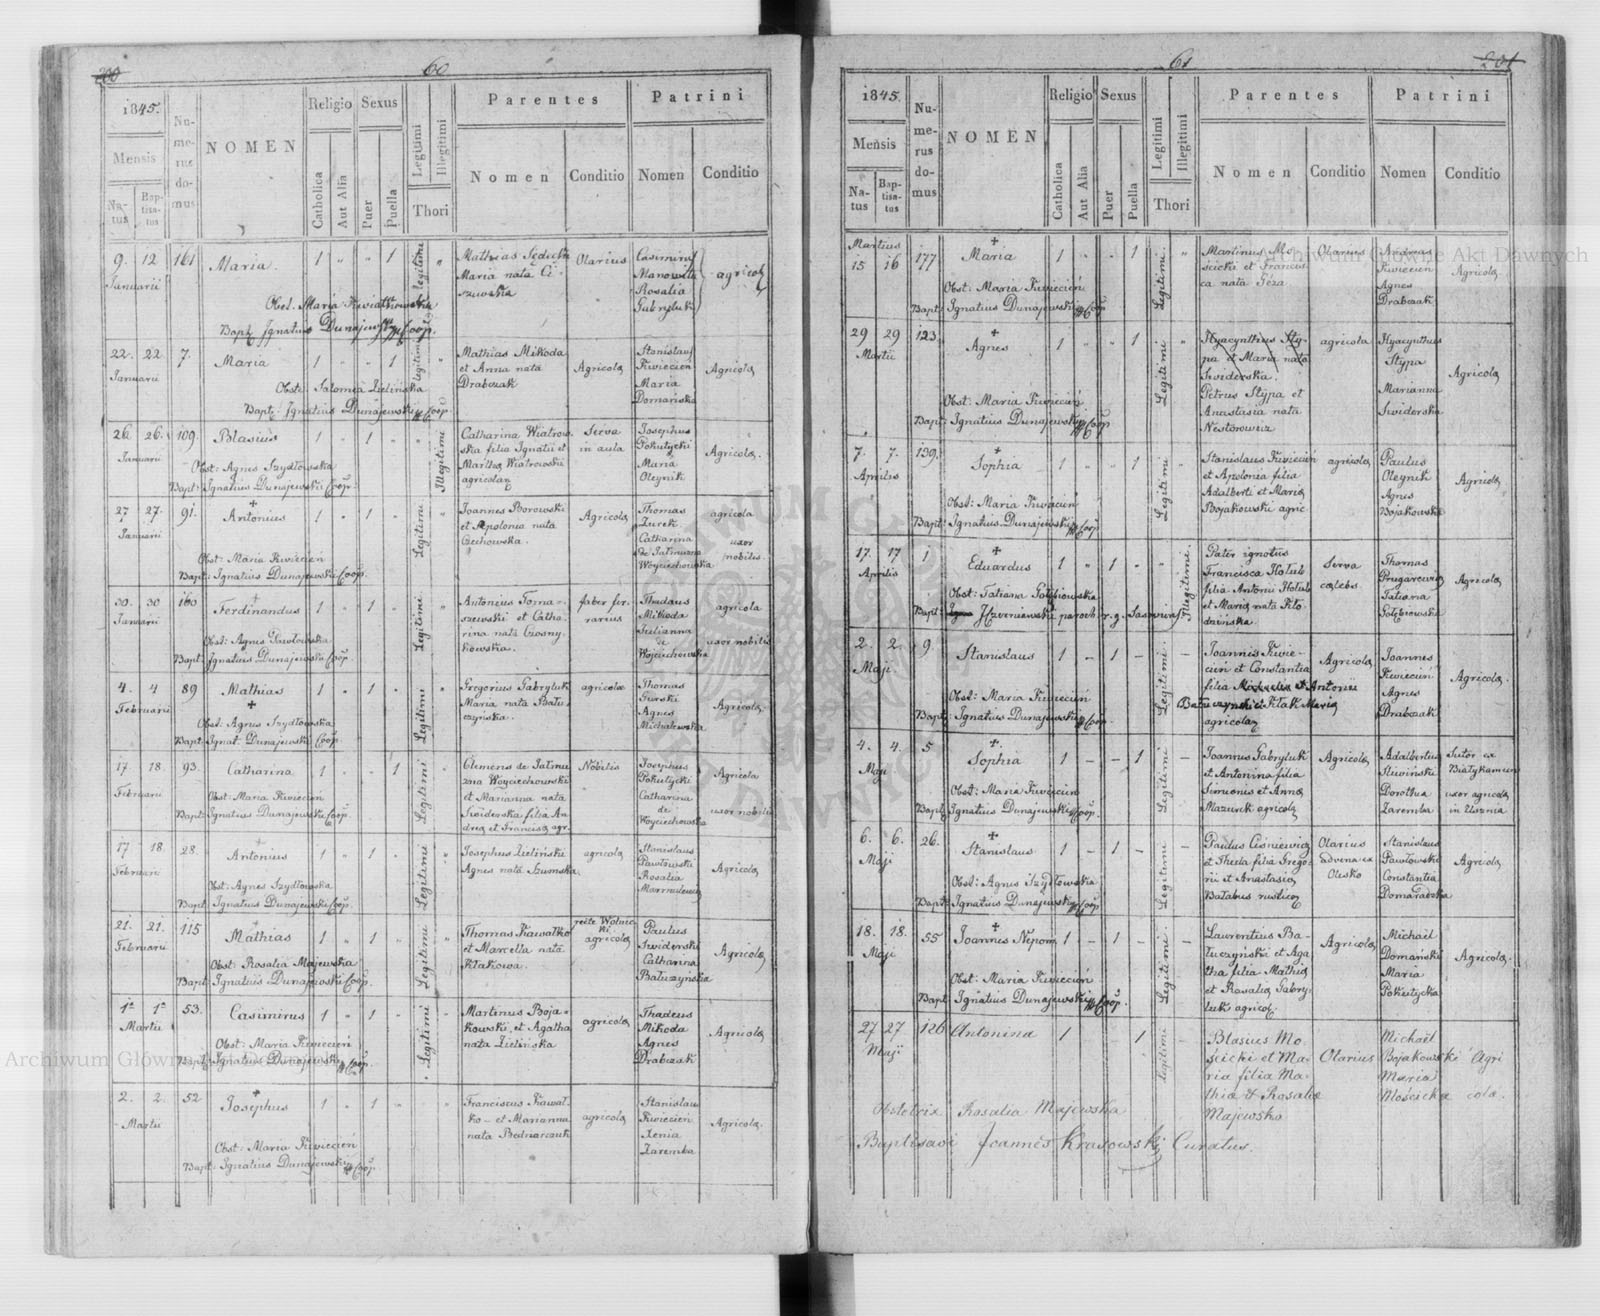 200
60
1845.
Mensis
Natus
Baptisatus
Numerus domus
NOMEN
Religio
Catholica
Aut Alia
Sexus
Puer
Puella
Legitimi
Illegitimi
Thori
Parentes
Nomen
Conditio
Patrini
Nomen
Conditio
9. 12 161 Maria. 1 " " 1 Legitimi "
Januarii
Mathias
Maria nata Ci-
szewska
Olarius
Casimirus
Manowita
Rosalia
Gabryluk
agricolæ
Obst. Maria Kwiatkowska
Bapt. Ignatius Dunajewski Coop.
22. 22. 7. Maria 1 " " 1 legitimi "
Januarii
Mathias Mikoda
et Anna nata
Drabczak
Agricola
Stanislaus
Kwiecien
Maria
Domańska
Agricola
Obst: Salomea Zielińska
Bapt: Ignatius Dunajewski Coop.
26. 26. 109. Blasius 1 " 1 " Illegitimi
Januarii
Catharina Wiatrow-
ska filia Ignatii et
Martha Wiatrowski
agricolæ
Serva
in aula
Josephus
Pokutycki
Maria
Oleynik
Agricola.
Obst: Agnes Szydłowska
Bapt: Ignatius Dunajewski Coop.
27 27. 91. Antonius 1 " 1 " Legitimi "
Januarii
Joannes Borowski
et Apolonia nata
Czechowska.
Agricola
Thomas
Żurek
Catharina
de Jatmuzna
Woyciechowska
agricola
uxor
nobilis.
Obst: Maria Kwiecien
Bapt: Ignatius Dunajewski Coop.
30. 30 160 Ferdinandus 1 " 1 " Legitimi "
Januarii
Antonius Toma-
szewski et Catha-
rina nata Krosny-
kowska.
faber fer-
rarius
Thadæus
Mikoda
Julianna
de
Woyciechowska
agricola
uxor nobilis
Obst: Agnes Pawłowska
Bapt: Ignatius Dunajewski Coop.
4. 4 89 Mathias 1 " 1 " Legitimi "
Februarii
Gregorius Gabryluk
Maria nata Batu-
czyńska.
agricolæ
Thomas
Gurski
Agnes
Michalewska
Agricola
Obst: Agnes Szydłowska
Bapt: Ignat: Dunajewski Coop.
17. 18. 93. Catharina 1 " " 1 Legitimi "
Februarii
Clemens de Jatmu-
zna Woyciechowski
et Marianna nata
Swiderska filia An-
drea et Francisca agr.
Nobilis
Josephus
Pokutycki
Catharina
de
Woyciechowska
Agricola
uxor nobilis
Obst: Maria Kwiecien
Bapt: Ignatius Dunajewski Coop.
17 18. 28. Antonius 1 " 1 " Legitimi "
Februarii
Josephus Zieliński
Agnes nata Szumska
agricola
Stanislaus
Pawłowski
Rosalia
Agricola
Obst: Agnes Szydłowska
Bapt: Ignatius Dunajewski Coop.
21. 21. 115 Mathias 1 " 1 " Legitimi "
Februarii
Thomas Kawalko
et Marcella nata
Kłakowa.
recte Wolnic-
ki
agricola
Paulus
Swiderski
Catharina
Batuczyńska
Agricola
Obst: Rosalia Majewska
Bapt: Ignatius Dunajewski Coop.
1a 1a 53. Casimirus 1 " 1 " Legitimi "
Martii
Martinus Boja-
kowski et Agatha
nata Zielińska
agricola
Thadeus
Mikoda
Agnes
Drabczak
Agricola
Obst: Maria Kwiecień
Bapt: Ignatius Dunajewski Coop.
2. 2. 52 Josephus 1 " 1 "
Martii
Franciscus Kawal-
ko et Marianna
nata Bednarczuk
agricola
Stanislaus
Kwiecien
Xenia
Zaremba
Agricola.
Obst: Maria Kwiecień
Bapt: Ignatius Dunajewski Coop.
61
201
1845.
Mensis
Natus
Baptisatus
Numerus domus
NOMEN
Religio
Catholica
Aut Alia
Sexus
Puer
Puella
Legitimi
Illegitimi
Thori
Parentes
Nomen
Conditio
Patrini
Nomen
Conditio
Martius
15 16 177 Maria 1 " " 1 Legitimi "
Martinus Mo-
ścicki et Francis-
ca nata Géza
Olarius
Andreas
Kwiecien
Agnes
Drabczak
Agricola
Obst: Maria Kwiecień
Bapt: Ignatius Dunajewski Coop
29 29 123. Agnes 1 " " 1 Legitimi "
Martii
Hyacynthus Sty-
pa et Maria nata
Swiderska.
Petrus Stypa et
Anastasia nata
Nestorowicz
agricola
Hyacynthus
Stypa
Marianna
Swiderska
Agricola
Obst: Maria Kwiecień
Bapt: Ignatius Dunajewski Coop
7. 7. 139. Sophia 1 " " 1 Legitimi "
Aprilis
Stanislaus Kwiecień
et Apolonia filia
Adalberti et Maria
Bojakowski agric.
agricola
Paulus
Oleynik
Agnes
Bojakowska
Agricola
Obst: Maria Kwiecień
Bapt: Ignatius Dunajewski Coop.
17. 17 1 Eduardus 1 " 1 " Illegitimi.
Aprilis
Pater ignotus
Francisca Hołub
filia Antonii Hołub
et Maria nata Kło-
dzińska
Serva
cælebs.
Thomas
Prugarewicz
Tatiana
Gołębiowska
Agricola
Obst: Tatiana Gołębiowska
Bapt: J Czerniawski paroch r. g. Sassoviæ
2. 2. 9. Stanislaus 1 - 1 - Legitimi -
Maji
Joannes Kwie-
cień et Constantia
filia Antonii
Batuczynski et Kłak Maria
agricola
Agricola
Joannes
Kwiecień
Agnes
Drabczak
Agricola.
Obst: Maria Kwiecień
Bapt: Ignatius Dunajewski Coop.
4. 4. 5 Sophia 1 - - 1 Legitimi -
Maji
Joannes Gabryluk
et Antonina filia
Simeonis et Anna
Mazurek agricola
Agricola
Adalbertus
Sliwiński
Dorothea
Zaremba
Sutor ex
Białykamien
uxor agricola
in Usznia
Obst: Maria Kwiecień
Bapt: Ignatius Dunajewski Coop.
6. 6. 26. Stanislaus 1 - 1 - Legitimi -
Maji
Paulus Cisniewicz
et Thecla filia Grego-
rii et Anastasia
Batabus rustica
Olarius
advena ex
Olesko
Stanislaus
Pawłowski
Constantia
Domaradzka
Agricola
Obst: Agnes Szydłowska
Bapt: Ignatius Dunajewski Coop.
18. 18. 55 Joannes Nepom. 1 - 1 - Legitimi -
Maji
Laurentius Ba-
tuczyński et Aga-
tha filia Mathia
et Rosalia Gabry-
luk agricol.
Agricola
Michaël
Domański
Maria
Pokutycka
Agricola.
Obst: Maria Kwiecień
Bapt: Ignatius Dunajewski Coop.
27 27 126 Antonina 1 1 legitimi
Maji
Blasius Mo-
ścicki et Ma-
ria filia Ma-
thia & Rosalia
Majewska
Olarius
Michaël
Bojakowski
Maria
Mościcka
Agri
cola.
Obstetrix Rosalia Majewska
Baptisavi Joannes Krasowski Curatus.
Archiwum Główne Akt Dawnych